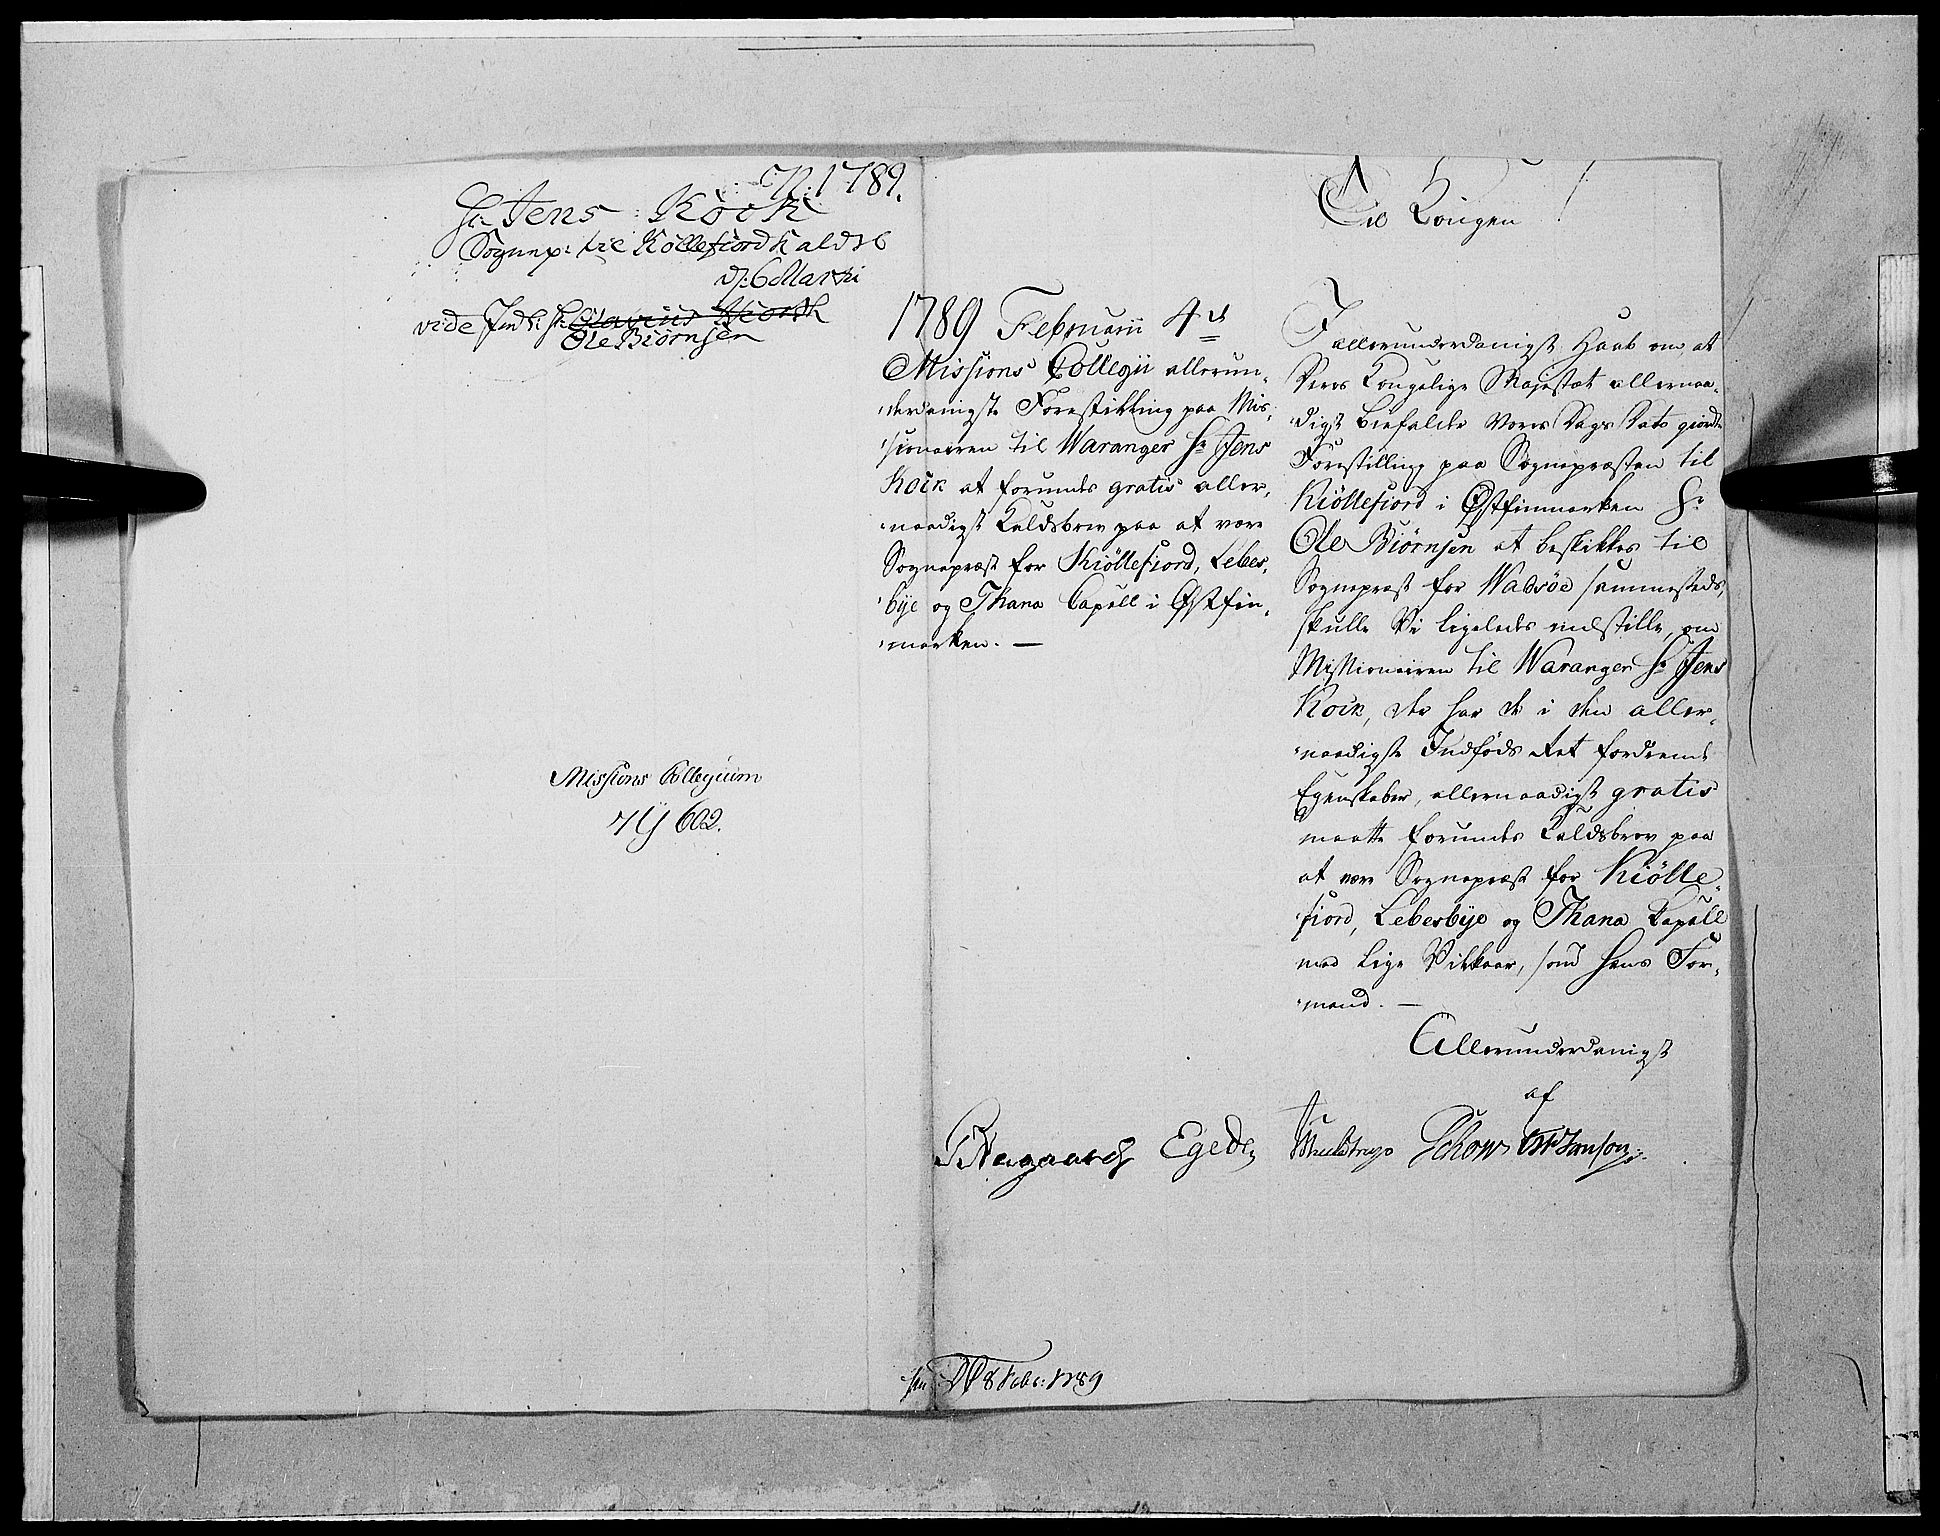 N: 1789.
Hr. Jens Kock
Sognepr: til Köllefiord Kald 36
d: 6 Martii
vide Ind: Hr: Olavius Hiorth
Ole Biørnsen
Missions Collegium
602.
1789 Februarii 4d
Missions Collegii allerun-
derdanigste Forestilling paa Mis-
sionairen til Waranger Hr Jens
Kock at forundes gratis aller-
naadigst Kaldsbrev paa at være
Sognepræst for Kiöllefiord, Lebes-
bye og Thana Capell i Østfin-
marken. —
Til Kongen!
I allerunderdanigst Haab om, at
Deres Kongelige Majestæt allernaa-
digst biefalder Vores Dags Dato giorde
Forestilling paa Sognepræsten til
Kiöllefiord i Østfinmarken Hr
Ole Biørnsen at beskikkes til
Sognepræst for Wadsöe sammesteds,
skulle Vi ligeledes indstille, om
Missionairen til Waranger Hr Jens
Kock, der har de i den aller-
naadigste Indföds Ret fordrende
Egenskaber, allernaadigst gratis
maatte forundes Kaldsbrev paa
at være Sognepræst for Kiölle-
fiord, Lebesbye og Thana Capell
med lige Vilkaar, som hans For-
mand. —
Allerunderdanigst
af
Egede
Schow
Janson
8 Febr: 1789